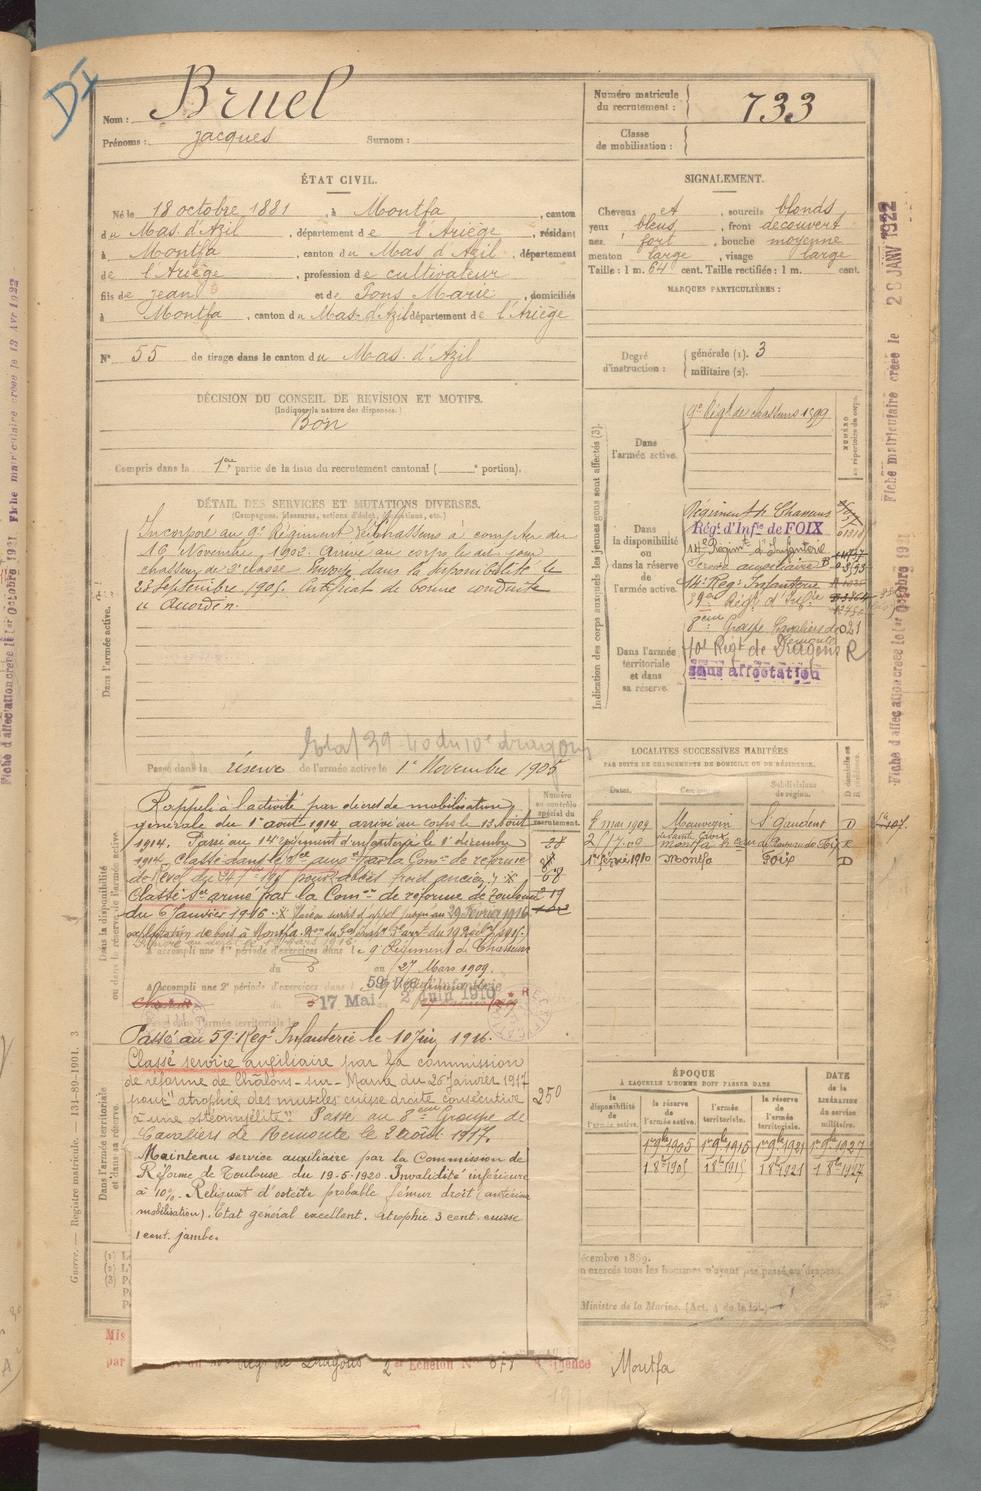 DI
Nom : Bruel
Prénoms : Jacques Surnom :
Numéro matricule du recrutement : 733
Classe de mobilisation :
ÉTAT CIVIL.
Né le 18 octobre 1881, à Montfa, canton
du Mas d'Azil, département de l'Ariège, résidant
à Montfa, canton du Mas d'Azil, département
de l'Ariège, profession de cultivateur
fils de Jean et de Pons Marie, domiciliés
à Montfa, canton du Mas d'Azil département de l'Ariège
N° 55 de tirage dans le canton du Mas d'Azil
SIGNALEMENT.
Cheveux et, sourcils blonds
yeux bleus, front découvert
nez fort, bouche moyenne
menton large, visage large
Taille : 1 m. 64 cent. Taille rectifiée : 1 m. cent.
MARQUES PARTICULIÈRES :
Degré d'instruction : générale (1). 3
militaire (2).
DÉCISION DU CONSEIL DE REVISION ET MOTIFS.
(Indiquer la nature des dispenses.)
Bon
Compris dans la 1re partie de la liste du recrutement cantonal ( portion).
DÉTAIL DES SERVICES ET MUTATIONS DIVERSES.
(Campagnes, blessures, actions d'éclat, décorations, etc.)
Dans l'armée active.
Incorporé au 9e Régiment de Chasseurs à compter du
16 Novembre 1902. Arrivé au corps le dit jour
chasseur de 2e classe. Envoyé dans la disponibilité le
23 septembre 1905. Certificat de bonne conduite
"accordé".
39-40 du 10e dragons
Passé dans la réserve de l'armée active le 1er Novembre 1905
Indication des corps auxquels les jeunes gens sont affectés (3).
NUMÉRO au répertoire du corps.
Dans l'armée active.
9e Régt de chasseurs 1599
Dans la disponibilité ou dans la réserve de l'armée active.
Régiment de Chasseurs
Rég. d'Infie de FOIX
14e Régimt d'Infanterie
Service auxiliaire
14e Rég. Infanterie
59e Rég. d'Infie
8eme Groupe Cavaliers de Remonte 021
Dans l'armée territoriale et dans sa réserve.
10e Régt de Dragons R
sans affectation
LOCALITÉS SUCCESSIVES HABITÉES
PAR SUITE DE CHANGEMENTS DE DOMICILE OU DE RÉSIDENCE.
Dates. Communes. Subdivisions de région. D domicile ou R résidence.
8 mai 1909 Mauvezin St Gaudens D
Montfa Foix R
1er février 1910 Montfa Foix D
Numéro au contrôle spécial du recrutement.
Dans la disponibilité ou dans la réserve de l'armée active.
Rappelé à l'activité par décret de mobilisation
générale du 1er août 1914, arrivé au corps le 13 Août
1914. Passé au 14e régiment d'infanterie le 1er décembre
1914. Classé dans le Sce aux. par la Comon de réforme
Classé Sce armé par la Comon de réforme de Toulouse
du 6 Janvier 1916. Mis en sursis d'appel jusqu'au 29 Février 1916
exploitation de bois à Montfa.
A accompli une 1re période d'exercices dans le 9e Régiment de Chasseurs
du 5 au 27 Mars 1909.
A accompli une 2e période d'exercices dans le 59e Régt d'Infanterie
du 17 Mai au 2 Juin 1910
Passé au 59e Régt Infanterie le 10 Juin 1916.
Dans l'armée territoriale et dans sa réserve.
Classé service auxiliaire par la commission
de réforme de Châlons-sur-Marne du 26 Janvier 1917
pour "atrophie des muscles cuisse droite consécutive
à une ostéomyélite". Passé au 8eme Groupe de
Cavaliers de Remonte le 2 Août 1917.
250
Maintenu service auxiliaire par la Commission de
Réforme de Toulouse du 19-5-1920. Invalidité inférieure
à 10%. Reliquat d'ostéite probable fémur droit (antérieur
mobilisation). Etat général excellent. atrophie 3 cent. cuisse
1 cent. jambe.
ÉPOQUE
À LAQUELLE L'HOMME DOIT PASSER DANS
DATE de la LIBÉRATION du service militaire.
la disponibilité de l'armée active. la réserve de l'armée active. l'armée territoriale. la réserve de l'armée territoriale.
1er 9bre 1905 1er 9bre 1915 1er 9bre 1921 1er 9bre 1927
1 8bre 1905 1 8bre 1915 1 8bre 1921 1 8bre 1927
décembre 1889.
Ministre de la Marine. (Art. 4 de la loi.)
Mis
par
Régt de Dragons 2e Echelon N° 871
Montfa
Guerre. — Registre matricule. 131-89-1901. 3
Fiche matriculaire créée le 20 JANV 1922
Fiche d'affectation créée le 1er Octobre 1921
Fiche d'affectation créée le 1er Octobre 1921 Fiche matriculaire créée le 13 Avr 1922